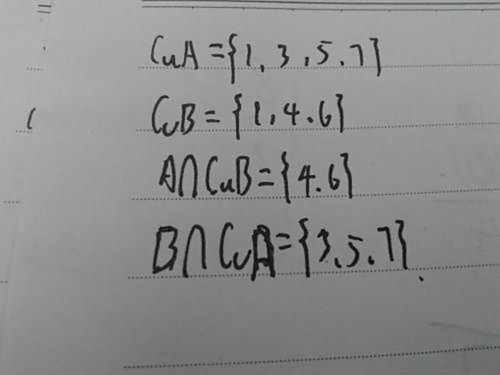 CuA={1,3,5.7}
CuB={1,4.6}
A∩CuB={4.6}
B∩CuA={3.5.7}.